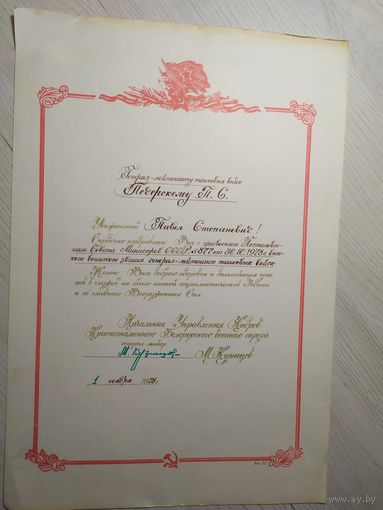 Генерал-лейтенанту танковых войск
Печерскому П. С.
Уважаемый Павел Степанович!
Сердечно поздравляю Вас с присвоением Постановле-
нием Совета Министров СССР от 1978 г.
воинского звания генерал-лейтенант танковых войск
Желаю Вам доброго здоровья и дальнейших успе-
хов в службе на благо нашей социалистической Родины
и ее славных Вооруженных Сил.
Начальник Управления Кадров
Краснознаменного Белорусского военного округа
генерал-майор
М. Кузнецов
1 ноября 1978
www.ay.by